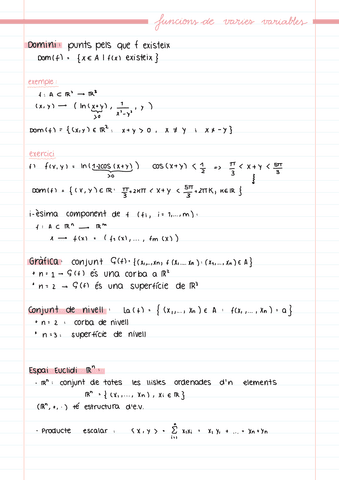 funcions de varies variables
Domini: punts pels que f existeix
Dom(f) = {x ∈ A | f(x) existeix}
exemple:
f: A ⊂ ℝ² → ℝ²
(x, y) → (ln(x+y), 1/(x²-y²), y)
>0
Dom(f) = {(x,y) ∈ ℝ² : x+y > 0, x ≠ y ; x ≠ -y}
exercici
f) f(x,y) = ln(1-2cos(x+y)) cos(x+y) < 1/2 => π/3 < x+y < 5π/3
>0
Dom(f) = {(x,y) ∈ ℝ² : π/3 + 2πK < x+y < 5π/3 + 2πK, K∈ℝ}
i-èsima component de f (fi, i = 1,...,m):
f: A ⊂ ℝⁿ → ℝᵐ
1 → f(x) = (f₁(x), ..., fm(x))
Gràfica: conjunt G(f) = {(x₁,...,xn, f(x₁...xn) : (x₁...,xn) ∈ A}
• n = 1 → G(f) és una corba a ℝ²
• n = 2 → G(f) és una superfície de ℝ³
Conjunt de nivell: La(f) = {(x₁,..., xn) ∈ A : f(x₁,..., xn) = a}
• n = 2 : corba de nivell
• n = 3 : superfície de nivell
Espai Euclidi ℝⁿ:
- ℝⁿ: conjunt de totes les llistes ordenades d'n elements
ℝⁿ = {(x₁,..., xn), xi ∈ ℝ}
(ℝⁿ, +, ·) té estructura d'e.v.
- Producte escalar: <x, y> = Σ xiyi = x₁y₁ + ... + xnyn